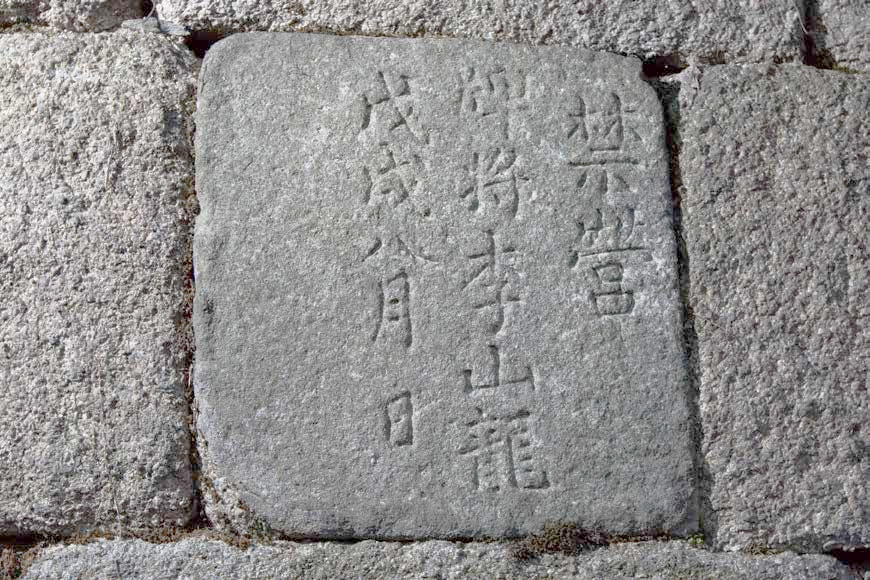 禁營
牌將李山龍
戊戌八月 日